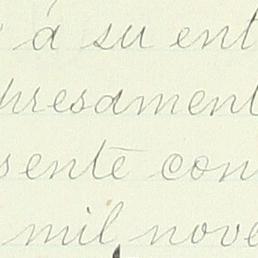 á su ent
presament
sente con
mil nove